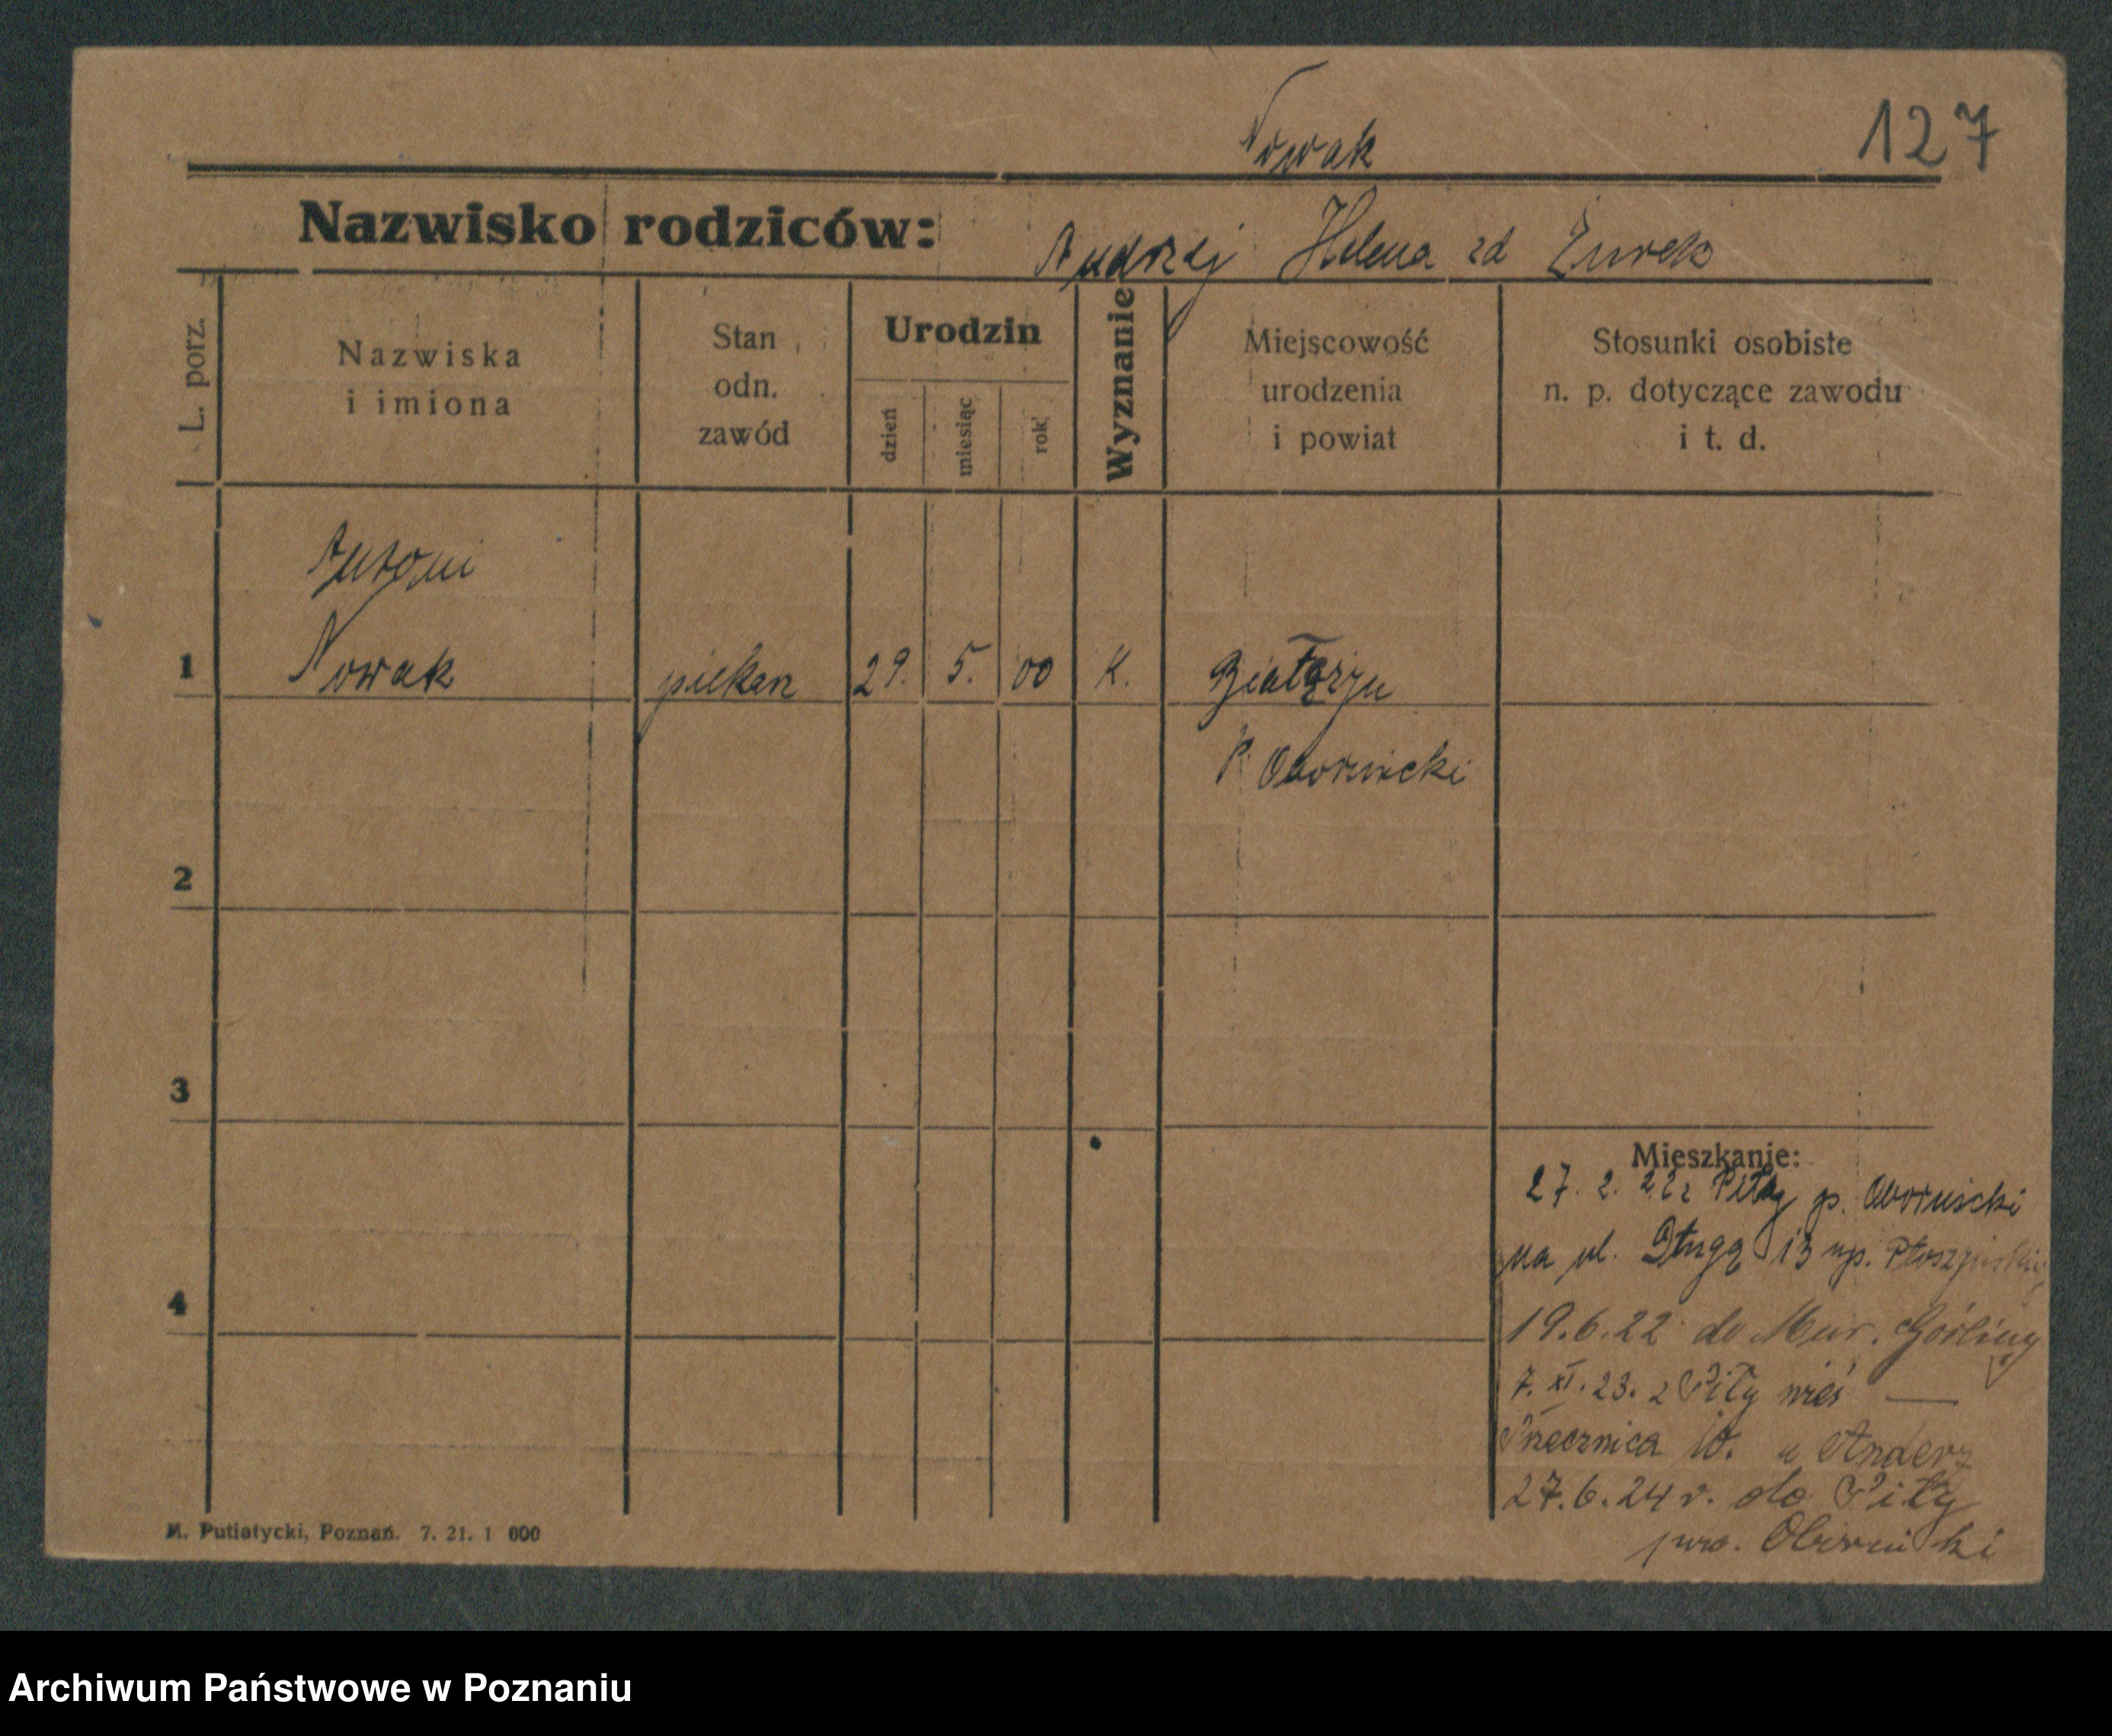 Nowak
127
Nazwisko rodziców: Andrzej Helena zd Żurek
L. porz.
Nazwiska
i imiona
Stan
odn.
zawód
Urodzin
dzień
miesiąc
rok
Wyznanie
Miejscowość
urodzenia
i powiat
Stosunki osobiste
n. p. dotyczące zawodu
i t. d.
Antoni
1 Nowak piekarz 29. 5. 00 K. Białężyn
P. Obornicki
2
3
4
Mieszkanie:
27. 2. 22 z Piły p. Obornicki
na ul. Długą 13 np.
19.6.22 do Mur. Gośliny
7. XI. 23. z Piły wieś —
Poznecznica 10. u
27.6.24 r. do Piły
pow. Obornicki
M. Putiatycki, Poznań. 7. 21. 1 000
Archiwum Państwowe w Poznaniu